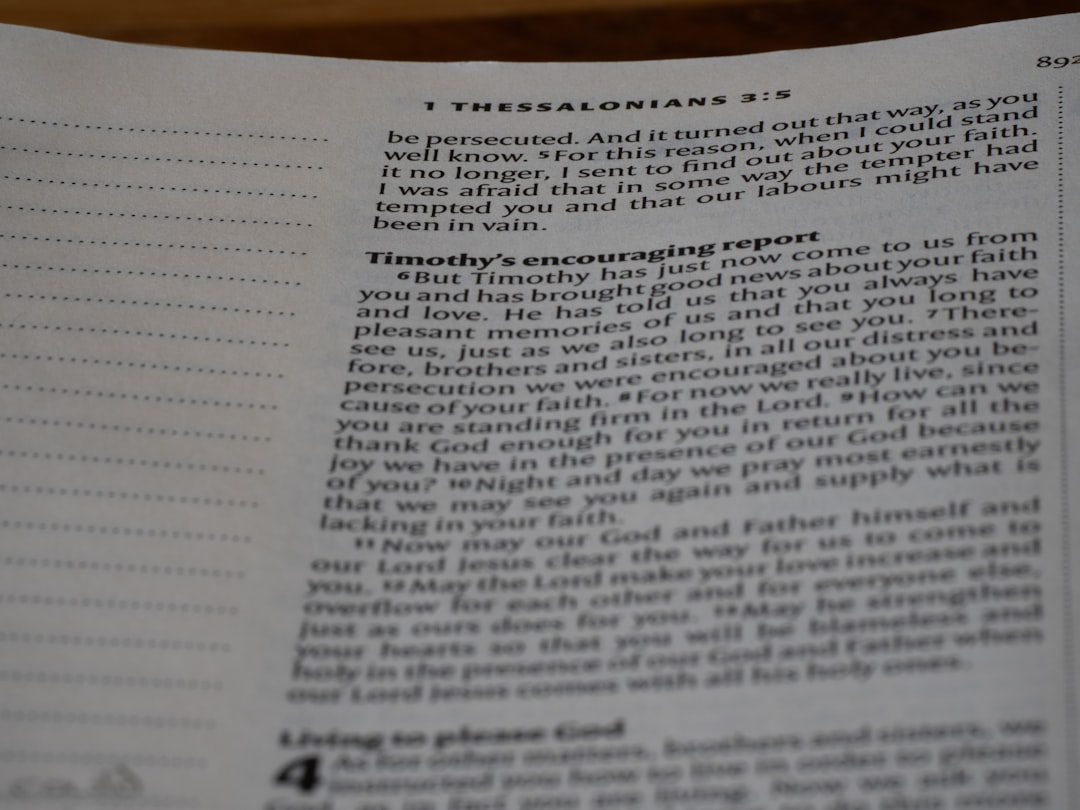 892
1 THESSALONIANS 3:5
be persecuted. And it turned out that way, as you
well know. 5 For this reason, when I could stand
it no longer, I sent to find out about your faith.
I was afraid that in some way the tempter had
tempted you and that our labours might have
been in vain.
Timothy’s encouraging report
6 But Timothy has just now come to us from
you and has brought good news about your faith
and love. He has told us that you always have
pleasant memories of us and that you long to
see us, just as we also long to see you. 7 There-
fore, brothers and sisters, in all our distress and
persecution we were encouraged about you be-
cause of your faith. 8 For now we really live, since
you are standing firm in the Lord. 9 How can we
thank God enough for you in return for all the
joy we have in the presence of our God because
of you? 10 Night and day we pray most earnestly
that we may see you again and supply what is
lacking in your faith.
11 Now may our God and Father himself and
our Lord Jesus clear the way for us to come to
you. 12 May the Lord make your love increase and
overflow for each other and for everyone else,
just as ours does for you. 13 May he strengthen
your hearts so that you will be blameless and
holy in the presence of our God and Father when
our Lord Jesus comes with all his holy ones.
Living to please God
4 As for other matters, brothers and sisters, we
instructed you how to live in order to please
God, as in fact you are living. Now we ask you